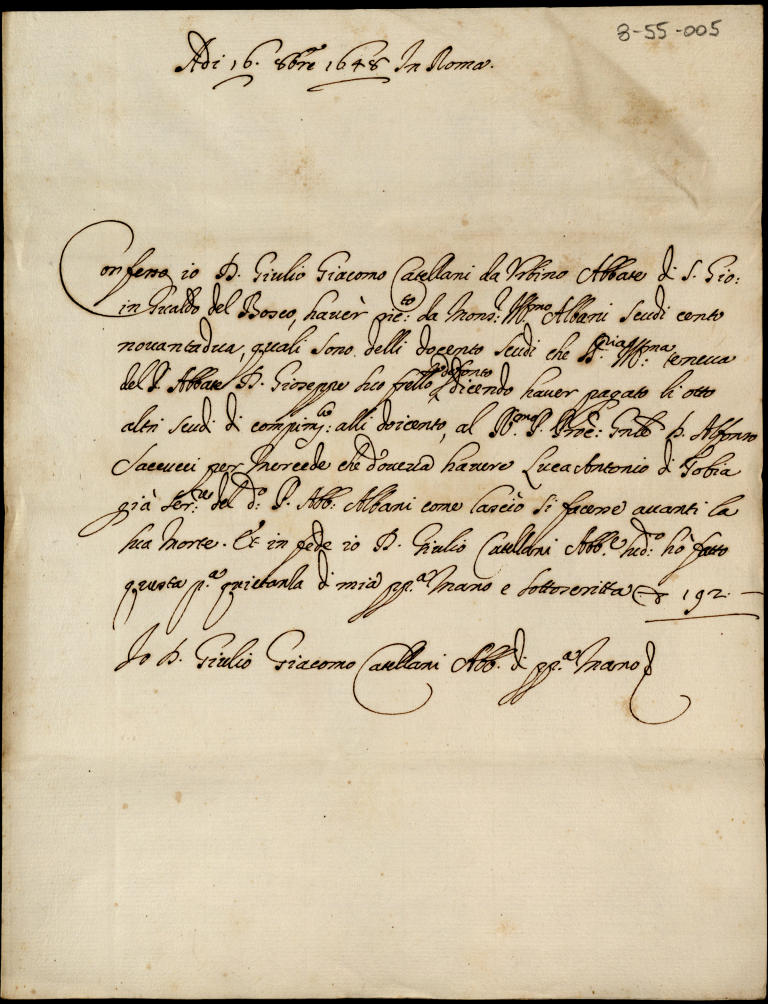 8-55-005
Adi 16. 8bre 1648 In Roma.
Confesso io D. Giulio Giacomo Catellani da Urbino Abbate di S. Gio:
in Gualdo del Bosco, havèr ric:to da Mons.r Ill.mo Albani scudi cento
novantadua, quali sono delli docento scudi che S. Ill.ma: teneva
del P. Abbate D. Gioseppe suo frello defonto dicendo haver pagato li otto
altri scudi di compim:to alli doicento, al R.mo P. Proc: Gnle D. Alfonso
Saccucci per mercede che doveva havere Luca Antonio di Tobia
già ser:re del d: P. Abb: Albani come lasciò si facesse avanti la
sua morte. Et in fede io D. Giulio Catellani Abb.e sud:o hò fatto
questa p.a quietanza di mia pp.a mano e sottoscritta 192.
Io D. Giulio Giacomo Catellani Abb. di pp.a mano